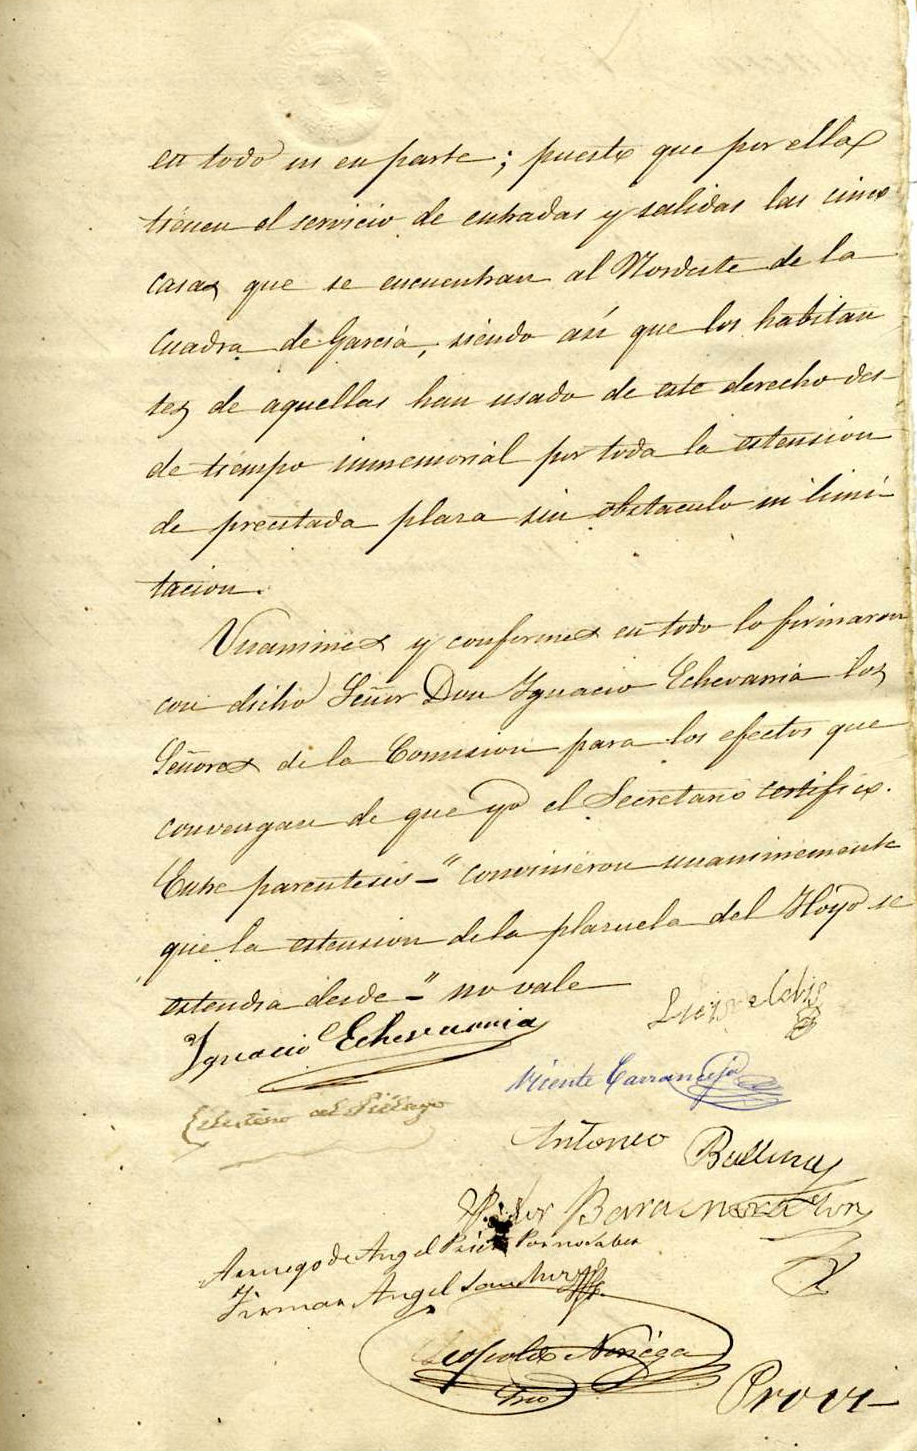 en todo ni en parte; puesto que por ella
tienen el servicio de entradas y salidas las cinco
casas que se encuentran al Nordeste de la
cuadra de Garcia, siendo así que los habitan
tes de aquellas han usado de este derecho des-
de tiempo inmemorial por toda la estension
de precitada plaza sin obstaculo ni limi-
tacion.
Unanimes y conformes en todo lo firmaron
con dicho Señor Don Ygnacio Echevarria los
Señores de la Comision para los efectos que
convengan de que yo el Secretario certifico.
Entre parentesis-"convinieron unanimemente
que la estension de la plazuela del Hoyo se
estendia desde-" no vale
Ygnacio Echevarria
Luis de
Vicente Carranceja
Celestino del Piélago
Antonio
Baramora
Arruego de Angel Por no saber
Firmar Angel Sanchez
Leopoldo Noriega
Srio
Provi-